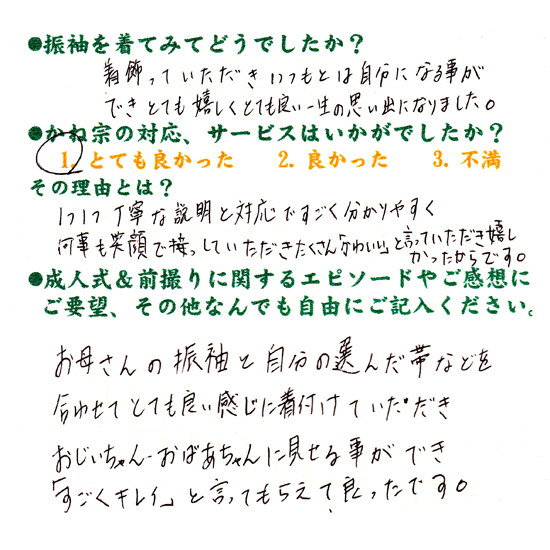 ●振袖を着てみてどうでしたか？
着飾っていただきいつもとは自分になる事が
できとても嬉しくとても良い一生の思い出になりました。
●かね宗の対応、サービスはいかがでしたか？
1. とても良かった　2. 良かった　3. 不満
その理由とは？
1つ1つ丁寧な説明と対応ですごく分かりやすく
何事も笑顔で接っしていただきたくさん「かわいい」と言っていただき嬉し
かったからです。
●成人式＆前撮りに関するエピソードやご感想に
ご要望、その他なんでも自由にご記入ください。
お母さんの振袖と自分の選んだ帯などを
合わせてとても良い感じに着付けていただき
おじいちゃん・おばあちゃんに見せる事ができ
「すごくキレイ」と言ってもらえて良ったです。